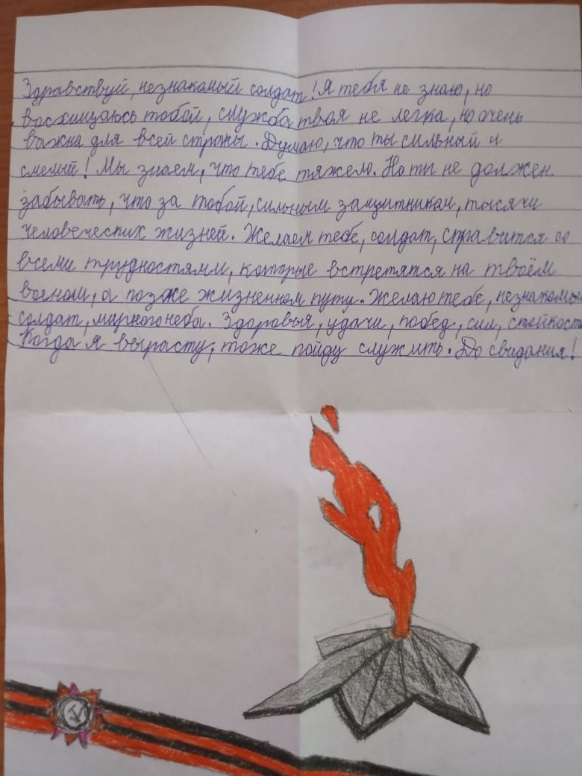 Здравствуй, незнакомый солдат! Я тебя не знаю, но
восхищаюсь тобой, служба твоя не легка, но очень
важна для всей страны. Думаю, что ты сильный и
смелый! Мы знаем, что тебе тяжело. Но ты не должен
забывать, что за тобой, сильным защитником, тысячи
человеческих жизней. Желаем тебе, солдат, справится со
всеми трудностями, которые встретятся на твоём
военом, а позже жизненном пути. Желаю тебе, незнакомый
солдат, мирного неба. Здоровья, удачи, побед, сил, стойкости
Когда я вырасту, тоже пойду служить. До свидания!